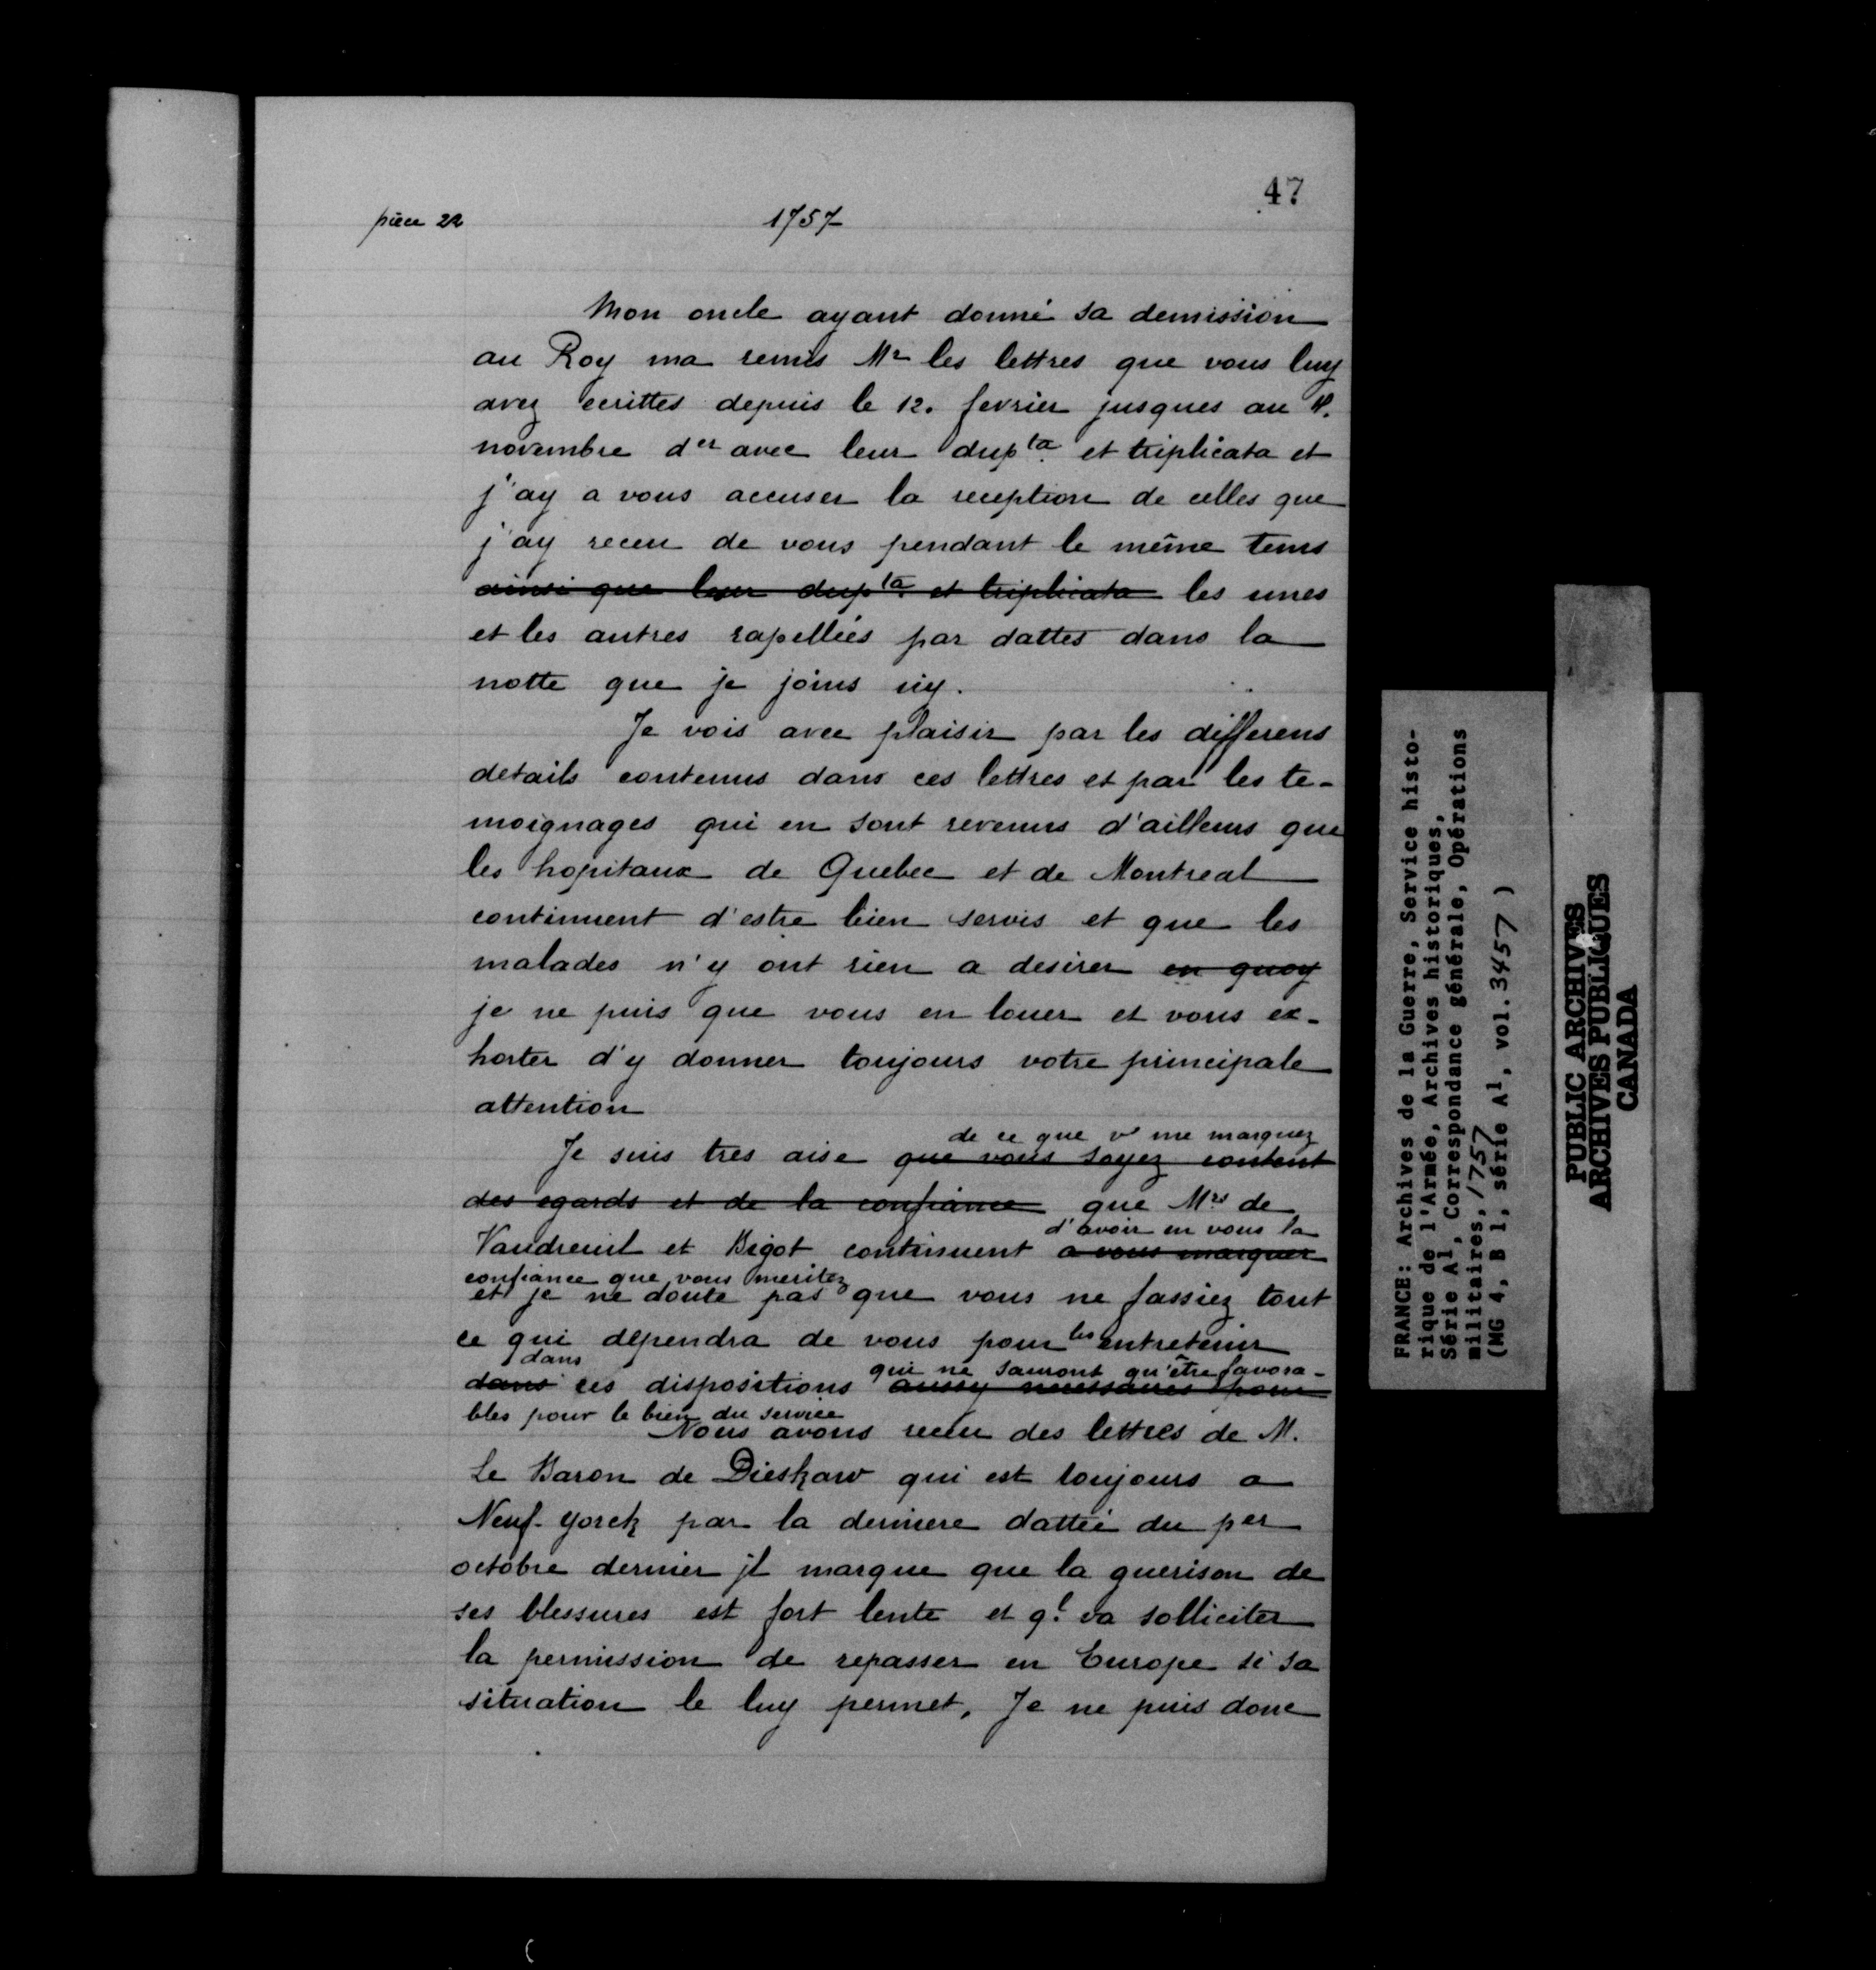 47
pièce 22
1757
Mon oncle ayant donné sa demission
au Roy ma remis Mr les lettres que vous luy
avez ecrittes depuis le 12. fevrier jusques au
novembre der avec leur dupta et triplicata et
j'ay a vous accuser la reception de celles que
j'ay receu de vous pendant le même tems
ainsi que leur dupta et triplicata les unes
et les autres rapellées par dattes dans la
notte que je joins icy.
Je vois avec plaisir par les differens
details contenus dans ces lettres et par les te-
moignages qui en sont revenus d'ailleurs que
les hopitaux de Quebec et de Montreal
continuent d'estre bien servis et que les
malades n'y ont rien a desirer en quoy
je ne puis que vous en louer et vous ex-
horter d'y donner toujours votre principale
attention
de ce que vs me marquez
Je suis tres aise que vous soyez content
des egards et de la confiance que Mrs de
d'avoir en vous la
Vaudreuil et Bigot continuent a vous marquer
confiance que vous meritez
et je ne doute pas que vous ne fassiez tout
ce qui dependra de vous pour les entretenir
dans qui ne sauront qu'être favora-
dans ces dispositions aussy necessaires pour
bles pour le bien du service
Nous avons receu des lettres de M.
Le Baron de Dieskaw qui est toujours a
Neuf-yorck par la derniere dattée du per
octobre dernier jl marque que la guerison de
ses blessures est fort lente et ql va solliciter
la permission de repasser en Europe si sa
situation le luy permet, Je ne puis donc
FRANCE: Archives de la Guerre, Service histo-
rique de l'Armée, Archives historiques,
Série A1, Correspondance générale, Opérations
militaires, 1757
(MG 4, B 1, série A1, vol. 3457 )
PUBLIC ARCHIVES
ARCHIVES PUBLIQUES
CANADA